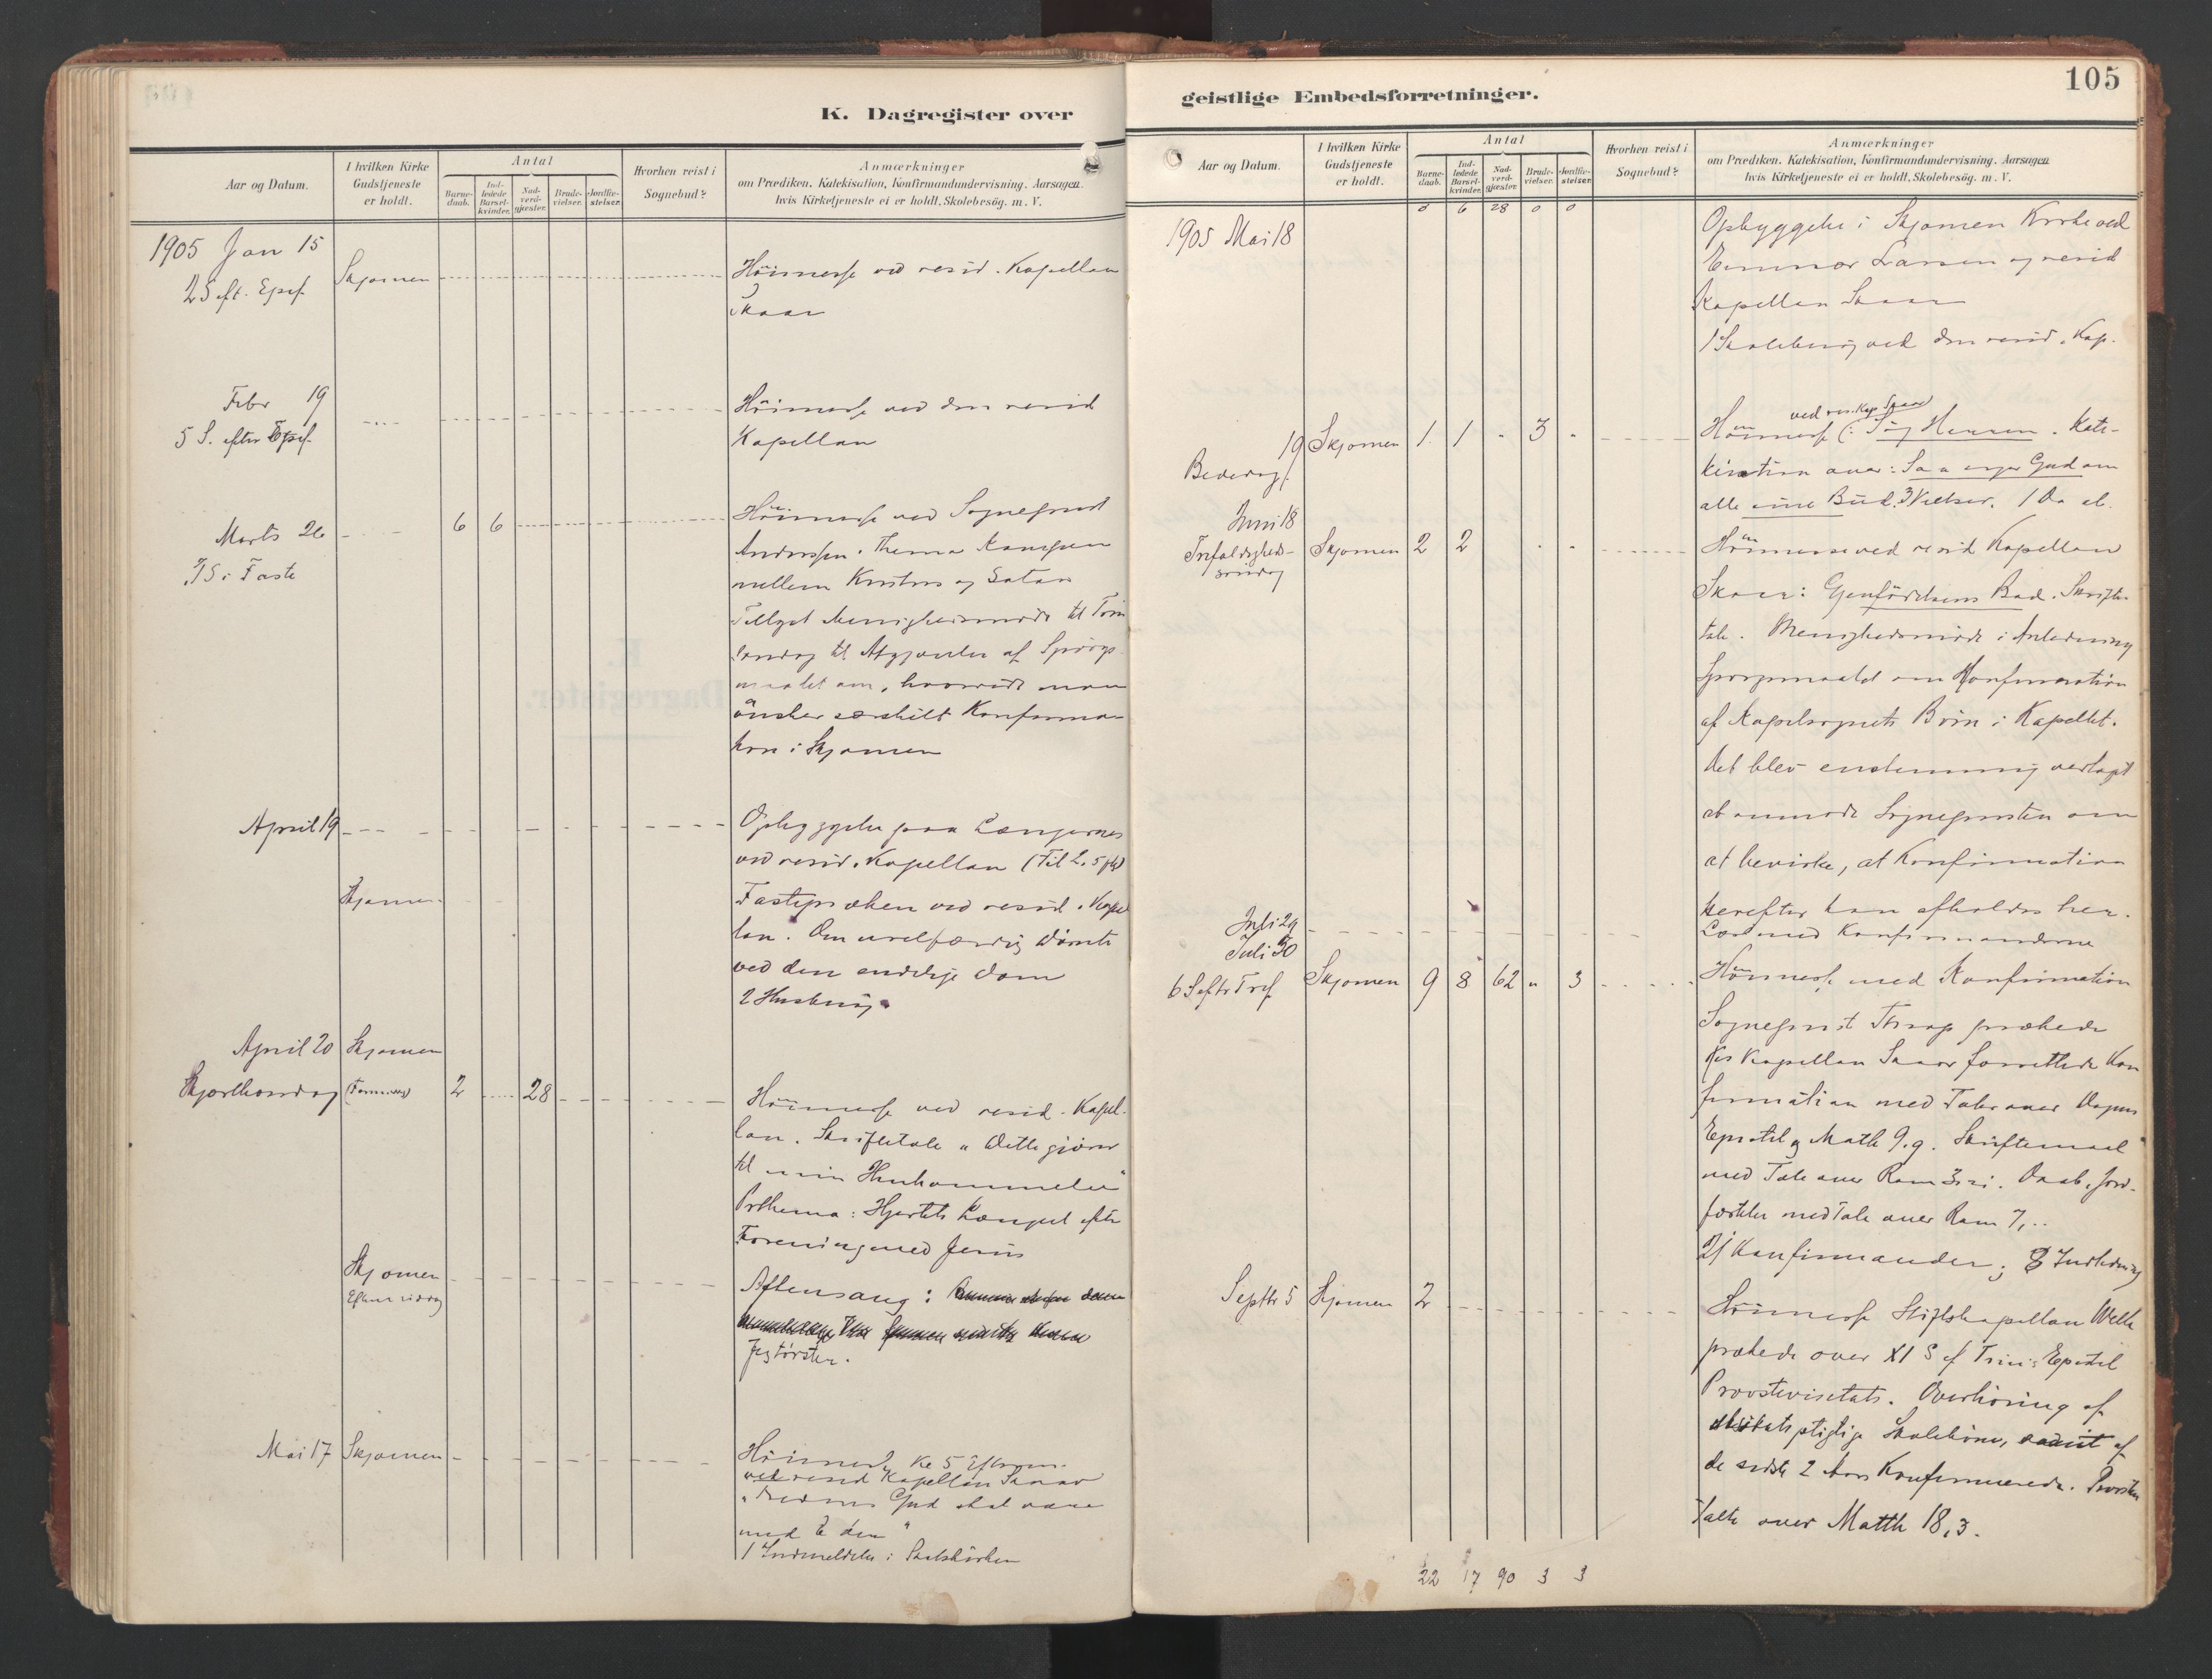 K. Dagregister over
Aar og Datum.
I hvilken Kirke
Gudstjeneste
er holdt.
Antal
Barne-
daab.
Ind-
ledede
Barsel-
kvinder.
Nad-
verd-
gjæster.
Brude-
vielser.
Jordfæ-
stelser.
Hvorhen reist i
Sognebud?
Anmærkninger
om Prædiken. Katekisation, Konfirmandundervisning. Aarsagen
hvis Kirketjeneste ei er holdt. Skolebesög. m. V.
1905 Jan 15
2 S eft. Epif.
Skjomen
Höimesse ved resid. Kapellan
Skaar
Febr 19
5 S. efter Epif.
Höimesse ved den resid
Kapellan
Marts 26
3 S i Faste
6 6
Höimesse ved Sogneprest
Anderssen. Thema Kampen
mellem Kristus og Satan
Tillyst Menighedsmøde til
til Afgjørelse af Spörgs-
maalet om, hvorvidt man
önsker særskilt Konfirma-
tion i Skjomen
April 19
Opbyggelse paa
ved resid. Kapellan
Skjomen
Fastepræken ved resid. Kapel
lan. Om uretfærdig dömte
ved den endelige dom
2 Husbesög
April 20 Skjomen
Skjærthorsdag (Formidd) 2 28
Höimesse ved resid. Kapel-
lan. Skriftetale "Dette gjörer
til min Ihukommelse"
Prthema: Hjertets Længsel efter
Forening med Jesus
Skjomen
Eftermiddag
Aftensang:
Jeg törster.
Mai 17 Skjomen
Höimesse Kl 5 Efterm.
ved resid Kapellan Skaar
"Fredens Gud skal være
med Eder"
1 Indmeldelse i Statskirken
geistlige Embedsforretninger.
105
Aar og Datum.
I hvilken Kirke
Gudstjeneste
er holdt.
Antal
Barne-
daab.
Ind-
ledede
Barsel-
kvinder.
Nad-
verd-
gjæster.
Brude-
vielser.
Jordfæ-
stelser.
Hvorhen reist i
Sognebud?
Anmærkninger
om Prædiken. Katekisation, Konfirmandundervisning. Aarsagen
hvis Kirketjeneste ei er holdt. Skolebesög. m. V.
8 6 28 0 0
1905 Mai 18
Opbyggelse i Skjomen Kirke ved
Larsen og resid
Kapellan Skaar
1 Skolebesög ved den resid. Kap.
ved res. Kap Skaar
19 Skjomen 1 1 " 3 "
Bededag
Höimesse (: Sög Herren. Kate-
kisation over: Saa siger Gud om
alle sine Bud. 3 Vielser. 1 Daab.
Juni 18
Trefoldigheds-
söndag
Skjomen 2 2
Höimesse ved resid Kapellan
Skaar: Gjenfödelsens Bad. Skrifte-
tale. Menighedsmöde i Anledning
Spørgsmaalet om Konfirmation
af Kapelsognets Börn i Kapellet.
Det blev enstemmig vedtaget
at anmode Sognepresten om
at bevirke, at Konfirmation
herefter kan afholdes her.
Juli 29
Læst med Konfirmanderne
Juli 30
6 S eftr Tref Skjomen 9 8 62 " 3
Höimesse med Konfirmation
Sogneprest prækede
Res Kapellan Skaar forrettede Kon
firmation med Tale over Dagens
Epistel og Math 9.9. Skriftemaal
med Tale over Rom 3. Daab. Jord-
fæstelse med Tale over Rom 7,
21 Konfirmander; 8 Indledning
Septbr 5 Skjomen 2
Höimesse Stiftskapellan
prækede over XI S ef Trin: Epistel
Provstevisitats. Overhöring af
visitatspligtige Skolebörn, samt af
de sidste 2 Aars Konfirmerede. Provsten
talte over Matth 18,3.
22 17 90 3 3